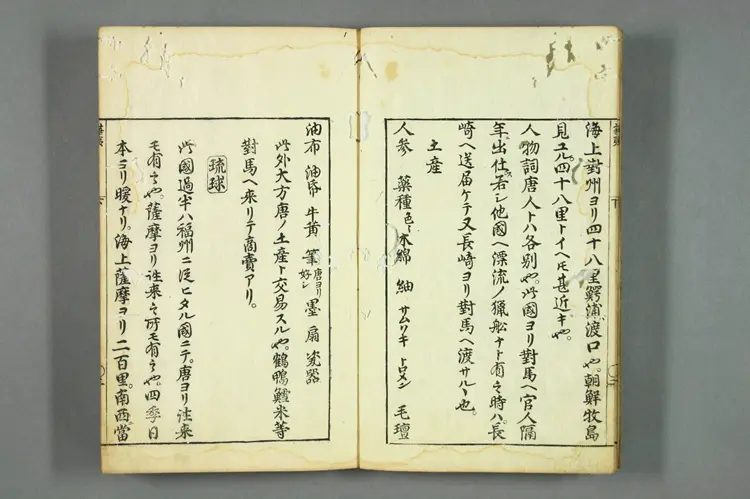 海上對州ヨリ四十八里鰐浦渡口也。朝鮮牧島
見ユル四十八里トイヘ𪜈甚近キ也。
人物詞唐人トハ各別也。此國ヨリ對馬ヘ官人隔
年ニ出仕ス。若シ他國ヘ漂流ノ獵船ナト有之時ハ。長
崎ヘ送届ケテ又長崎ヨリ對馬ヘ渡サルヽ也。
土産
人参 藥種色々 木綿 紬 サムツキ トロメン 毛氊
油布 油昏 牛黄 筆唐ヨリ好シ 墨 扇 瓷器
此外大方唐ノ土産ト交易スル也。鶴鴨鱈米等
對馬ヘ来リテ商賣アリ。
琉球
此國過半ハ福州ニ従ヒタル國ニテ。唐ヨリ注来
モ有之也。薩摩ヨリ注来之所モ有之也。四季日
本ヨリ暖ナリ。海上薩摩ヨリ二百里。南西ニ當